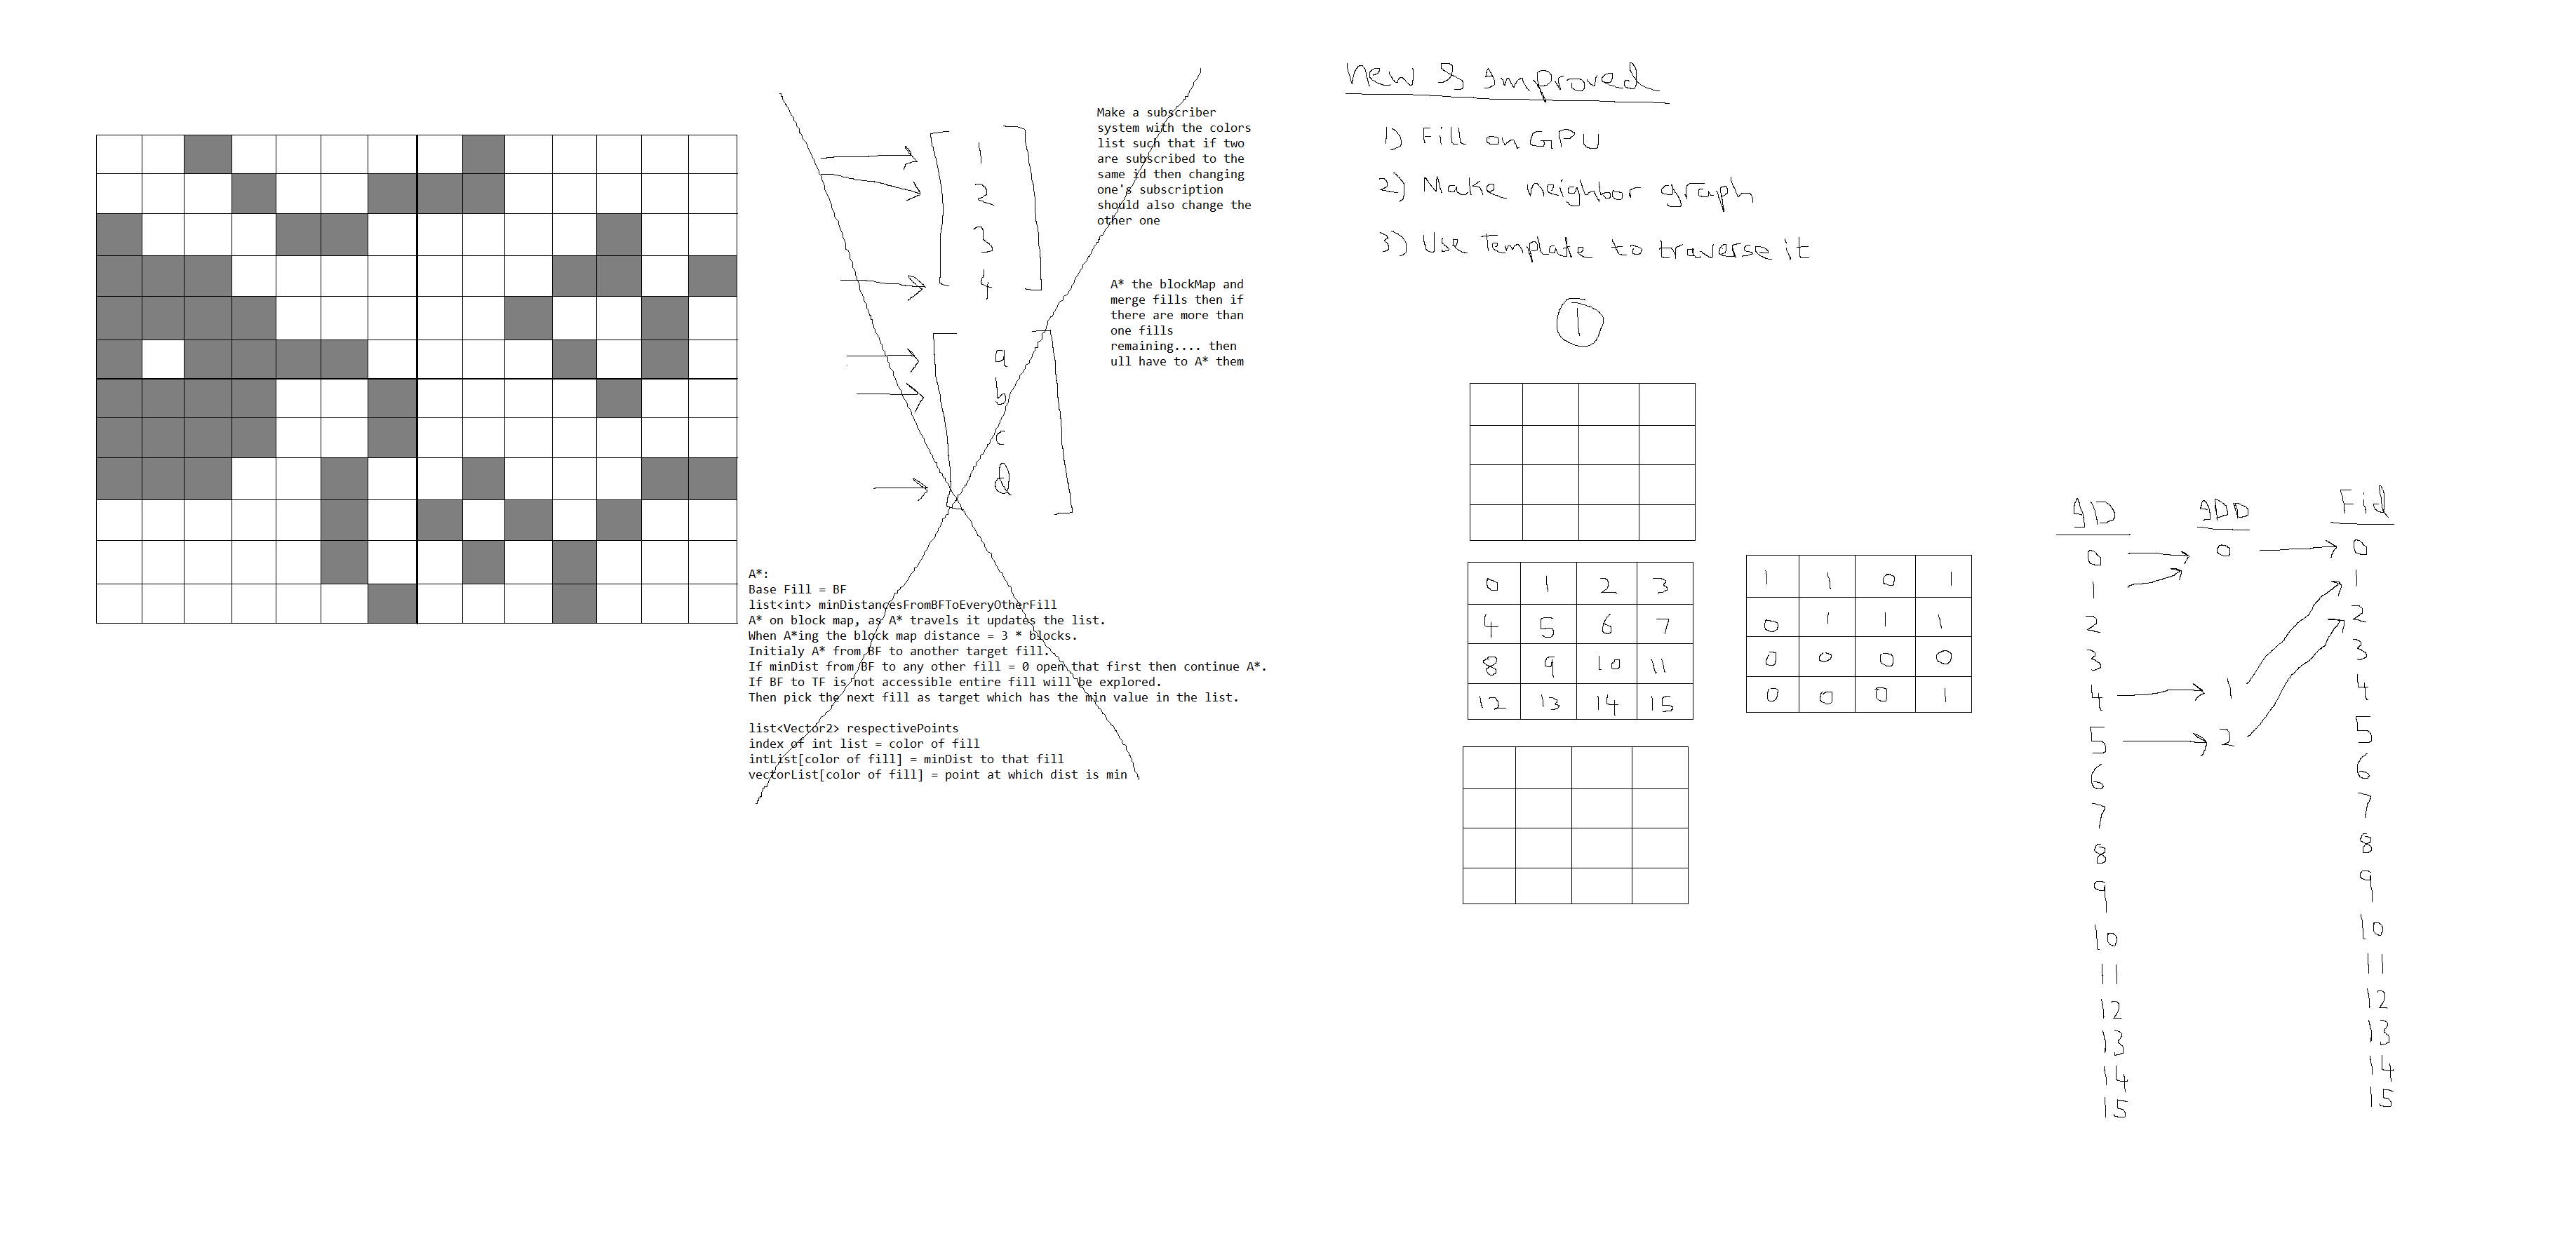 Make a subscriber
system with the colors
list such that if two
are subscribed to the
same id then changing
one's subscription
should also change the
other one
1
2
3
4
A* the blockMap and
merge fills then if
there are more than
one fills
remaining.... then
ull have to A* them
a
b
c
d
A*:
Base Fill = BF
list<int> minDistancesFromBFToEveryOtherFill
A* on block map, as A* travels it updates the list.
When A*ing the block map distance = 3 * blocks.
Initialy A* from BF to another target fill.
If minDist from BF to any other fill = 0 open that first then continue A*.
If BF to TF is not accessible entire fill will be explored.
Then pick the next fill as target which has the min value in the list.
list<Vector2> respectivePoints
index of int list = color of fill
intList[color of fill] = minDist to that fill
vectorList[color of fill] = point at which dist is min
New & Improved
1) Fill on GPU
2) Make neighbor graph
3) Use Template to traverse it
1
0 1 2 3
4 5 6 7
8 9 10 11
12 13 14 15
1 1 0 1
0 1 1 1
0 0 0 0
0 0 0 1
ID IDD Fid
0 0 0
1 1
2 2
3 3
4 1 4
5 2 5
6 6
7 7
8 8
9 9
10 10
11 11
12 12
13 13
14 14
15 15